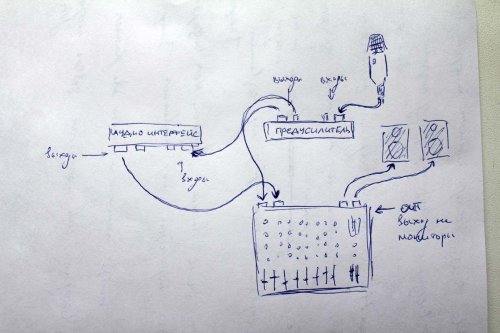 выходы
входы
АУДИО ИНТЕРФЕЙС
ПРЕДУСИЛИТЕЛЬ
выходы
входы
выход на
мониторы